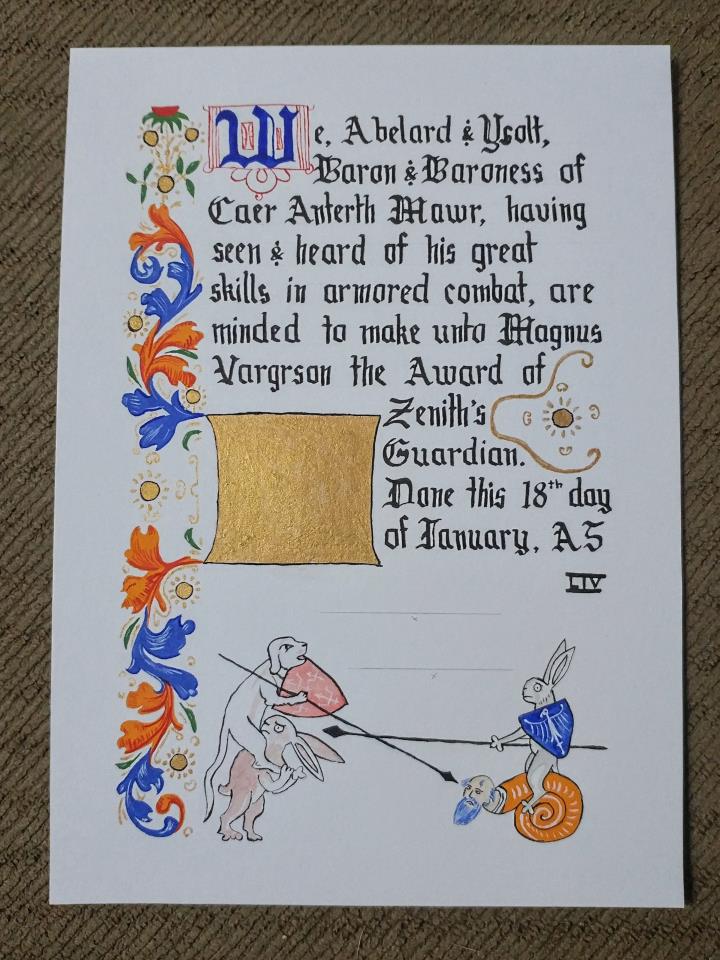 We, Abelard & Ysolt,
Baron & Baroness of
Caer Anterth Mawr, having
seen & heard of his great
skills in armored combat, are
minded to make unto Magnus
Vargrson the Award of
Zenith's
Guardian.
Done this 18th day
of January, AS
LIV